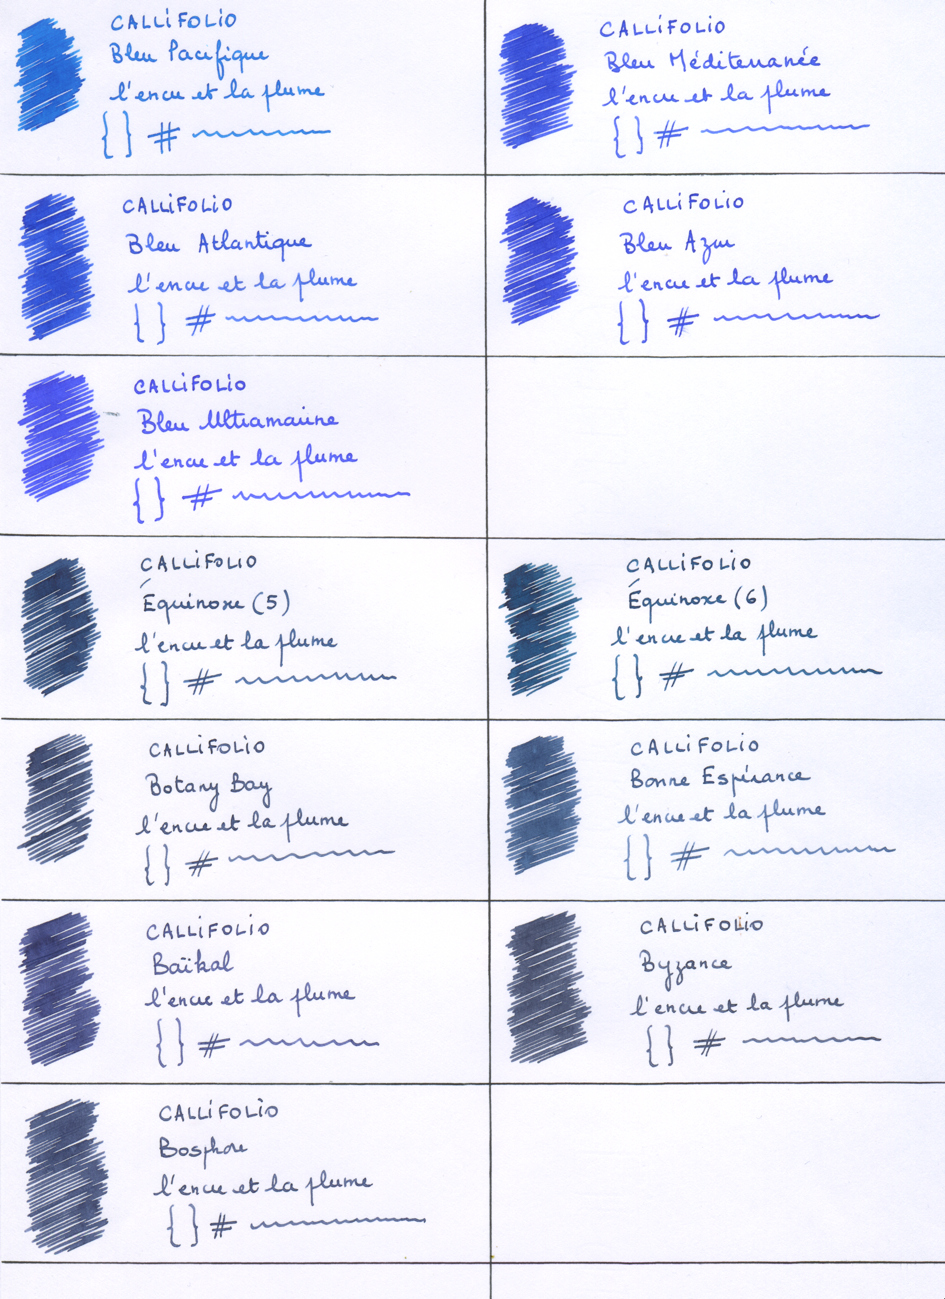 CALLiFOLiO
Bleu Pacifique
l'encre et la plume
{ } #
CALLiFOLiO
Bleu Méditerranée
l'encre et la plume
{ } #
CALLiFOLiO
Bleu Atlantique
l'encre et la plume
{ } #
CALLiFOLiO
Bleu Azur
l'encre et la plume
{ } #
CALLiFOLiO
Bleu Ultramarine
l'encre et la plume
{ } #
CALLiFOLiO
Équinoxe (5)
l'encre et la plume
{ } #
CALLiFOLiO
Équinoxe (6)
l'encre et la plume
{ } #
CALLiFOLiO
Botany Bay
l'encre et la plume
{ } #
CALLiFOLiO
Bonne Espérance
l'encre et la plume
{ } #
CALLiFOLiO
Baïkal
l'encre et la plume
{ } #
CALLiFOLiO
Byzance
l'encre et la plume
{ } #
CALLiFOLiO
Bosphore
l'encre et la plume
{ } #